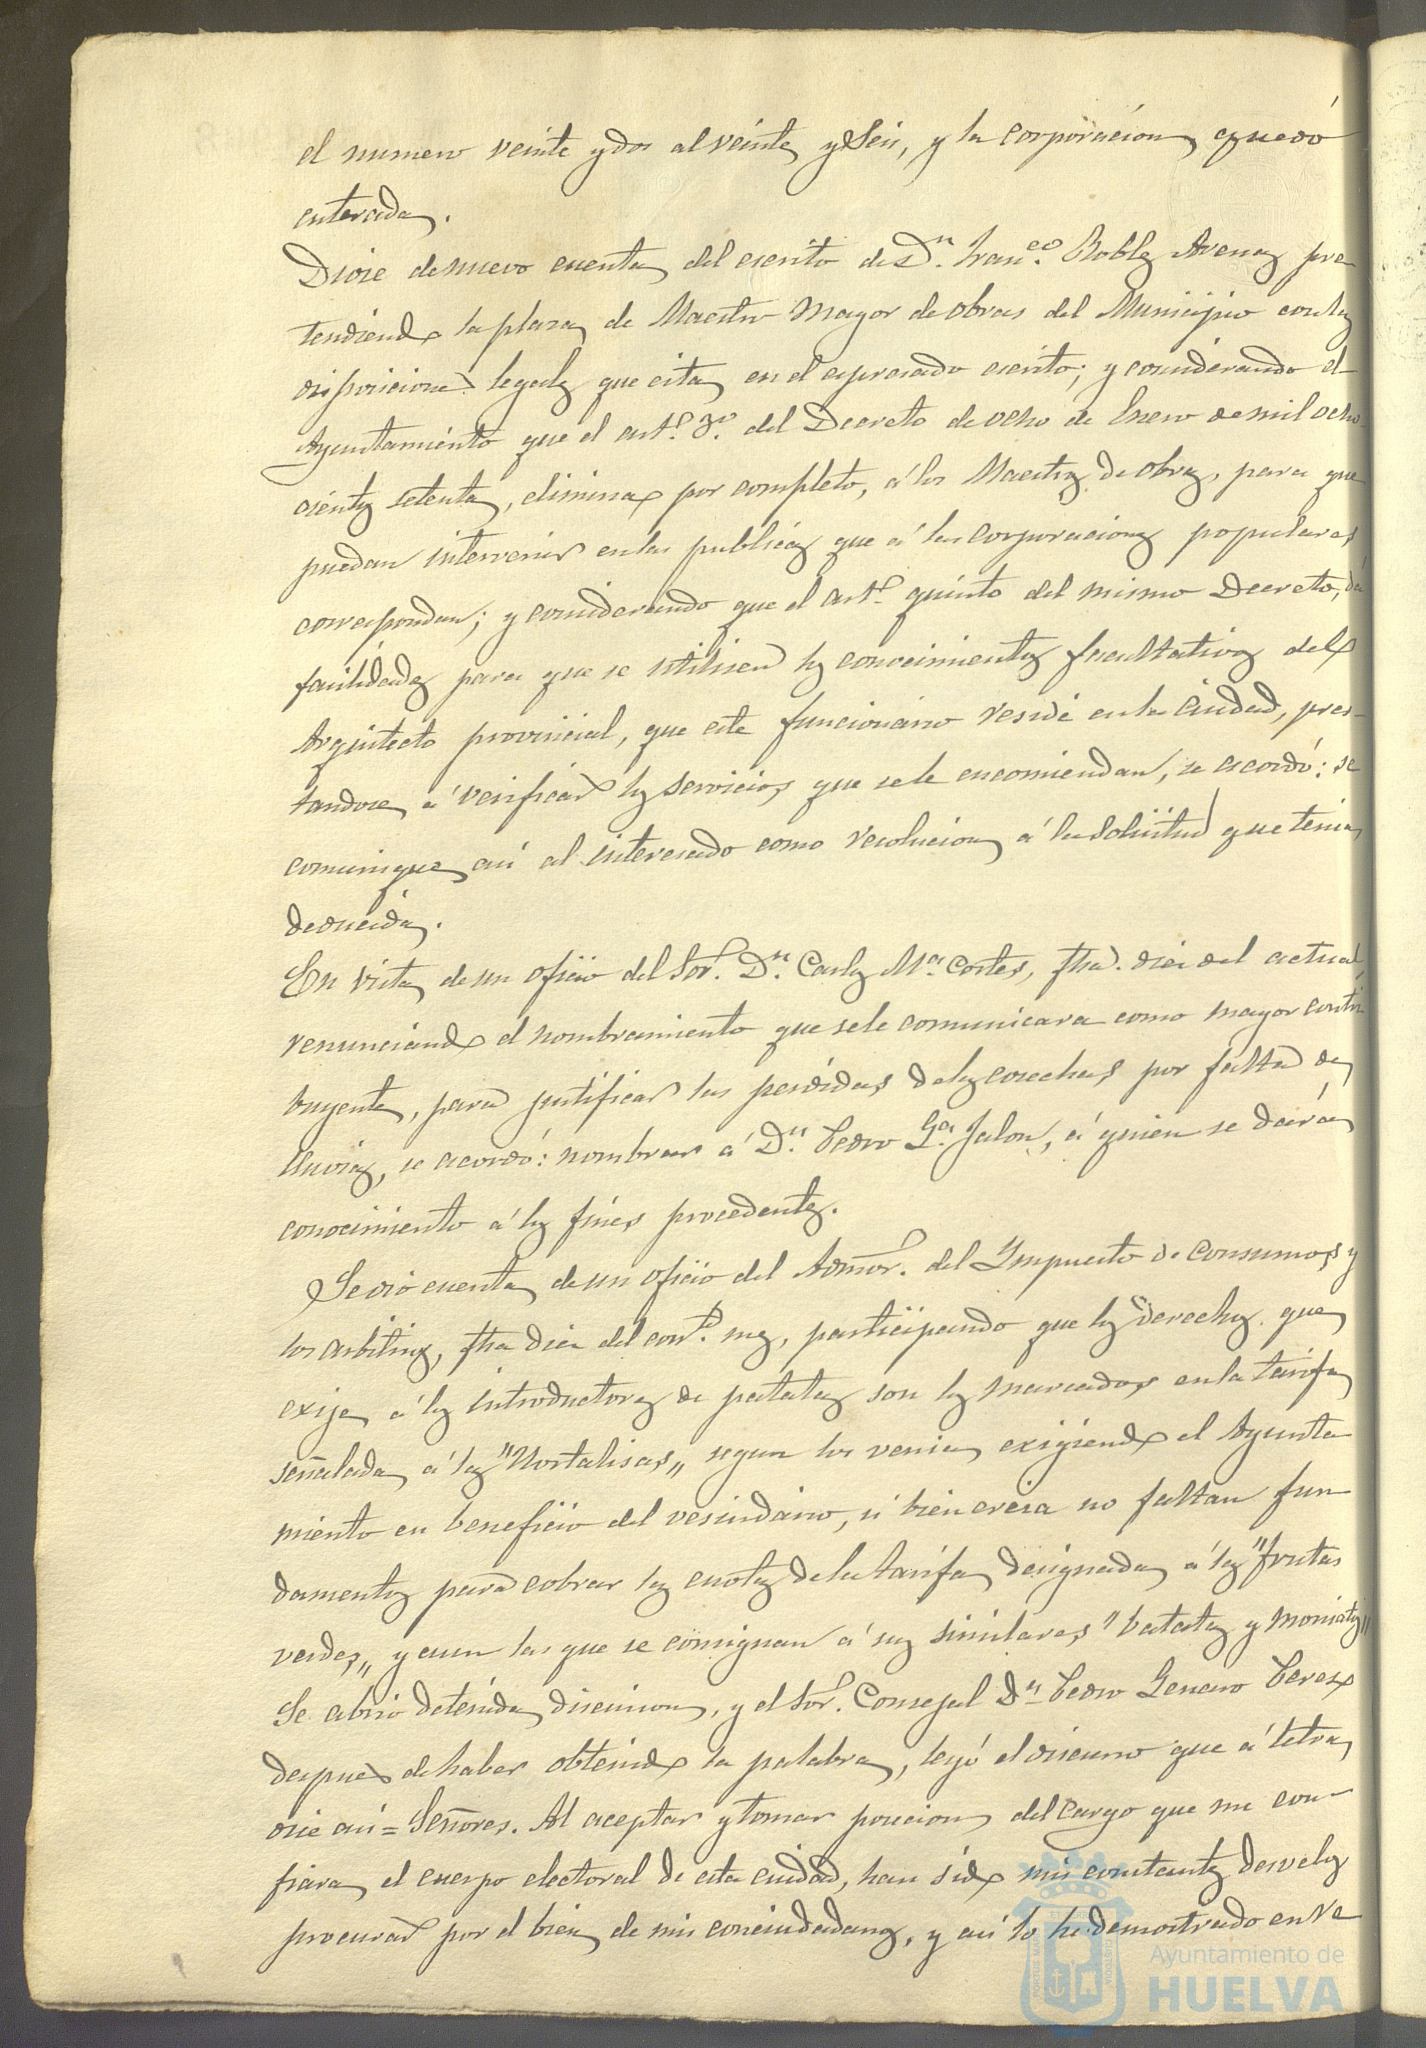 el numero veinte y dos al veinte y Seis, y la corporacion quedó
enterada.
Diose de nuevo cuenta del escrito de Dn. Franco. Robles Arenas pre
tendiendo la plaza de Maestro Mayor de obras del Municipio con las
disposiciones legales que cita en el espresado escrito; y considerando el
Ayuntamiento que el artº. 3º. del Decreto de ocho de Enero de mil ocho
cientos setenta, elimina por completo, á los Maestros de obras, para que
puedan intervenir en las publicas que á las corporaciones populares
correspondan; y considerando que el artº. quinto del mismo Decreto, dá
facilidades para que se utilisen los conocimientos facultativos del
Arquitecto provincial, que este funcionario reside en la Ciudad, pres-
tandose á verificar los servicios que se le encomiendan, se acordó: se
comunique asi al interesado como resolucion á la solicitud que tenia
deducida.
En vista de un oficio del Sor. Dn. Carlos Ma. Cortes, fha. diez del actual,
renunciando el nombramiento que se le comunicara como mayor contri
buyente, para justificar las perdidas de las cosechas por falta de
lluvias, se acordó: nombrar á Dn. Pedro Ga. Jalon, á quien se dará
conocimiento á los fines procedentes.
Se dio cuenta de un oficio del Admor. del Impuesto de Consumos y
los arbitrios, fha diez del corr. mes, participando que los derechos que
exije á los introductores de patatas son los marcados en la tarifa
señalada á las "Hortalisas„ segun los venia exigiendo el Ayunta
miento en beneficio del vesindario, si bien creia no faltan fun
damentos para cobrar las cuotas de la tarifa designada á las "frutas
verdes„ y aun las que se consignan á sus similares "batatas y moniatos„
Se abrió detenida discusion, y el Sor. Consejal Dn. Pedro Genaro Perez
despues de haber obtenido la palabra, leyó el discurso que á letra
dice asi = Señores. Al aceptar y tomar posecion del cargo que me con-
fiara el cuerpo electoral de esta ciudad, han sido mis constantes desvelos
procurar por el bien de mis conciudadanos, y asi lo he demostrado en re
Ayuntamiento de
HUELVA